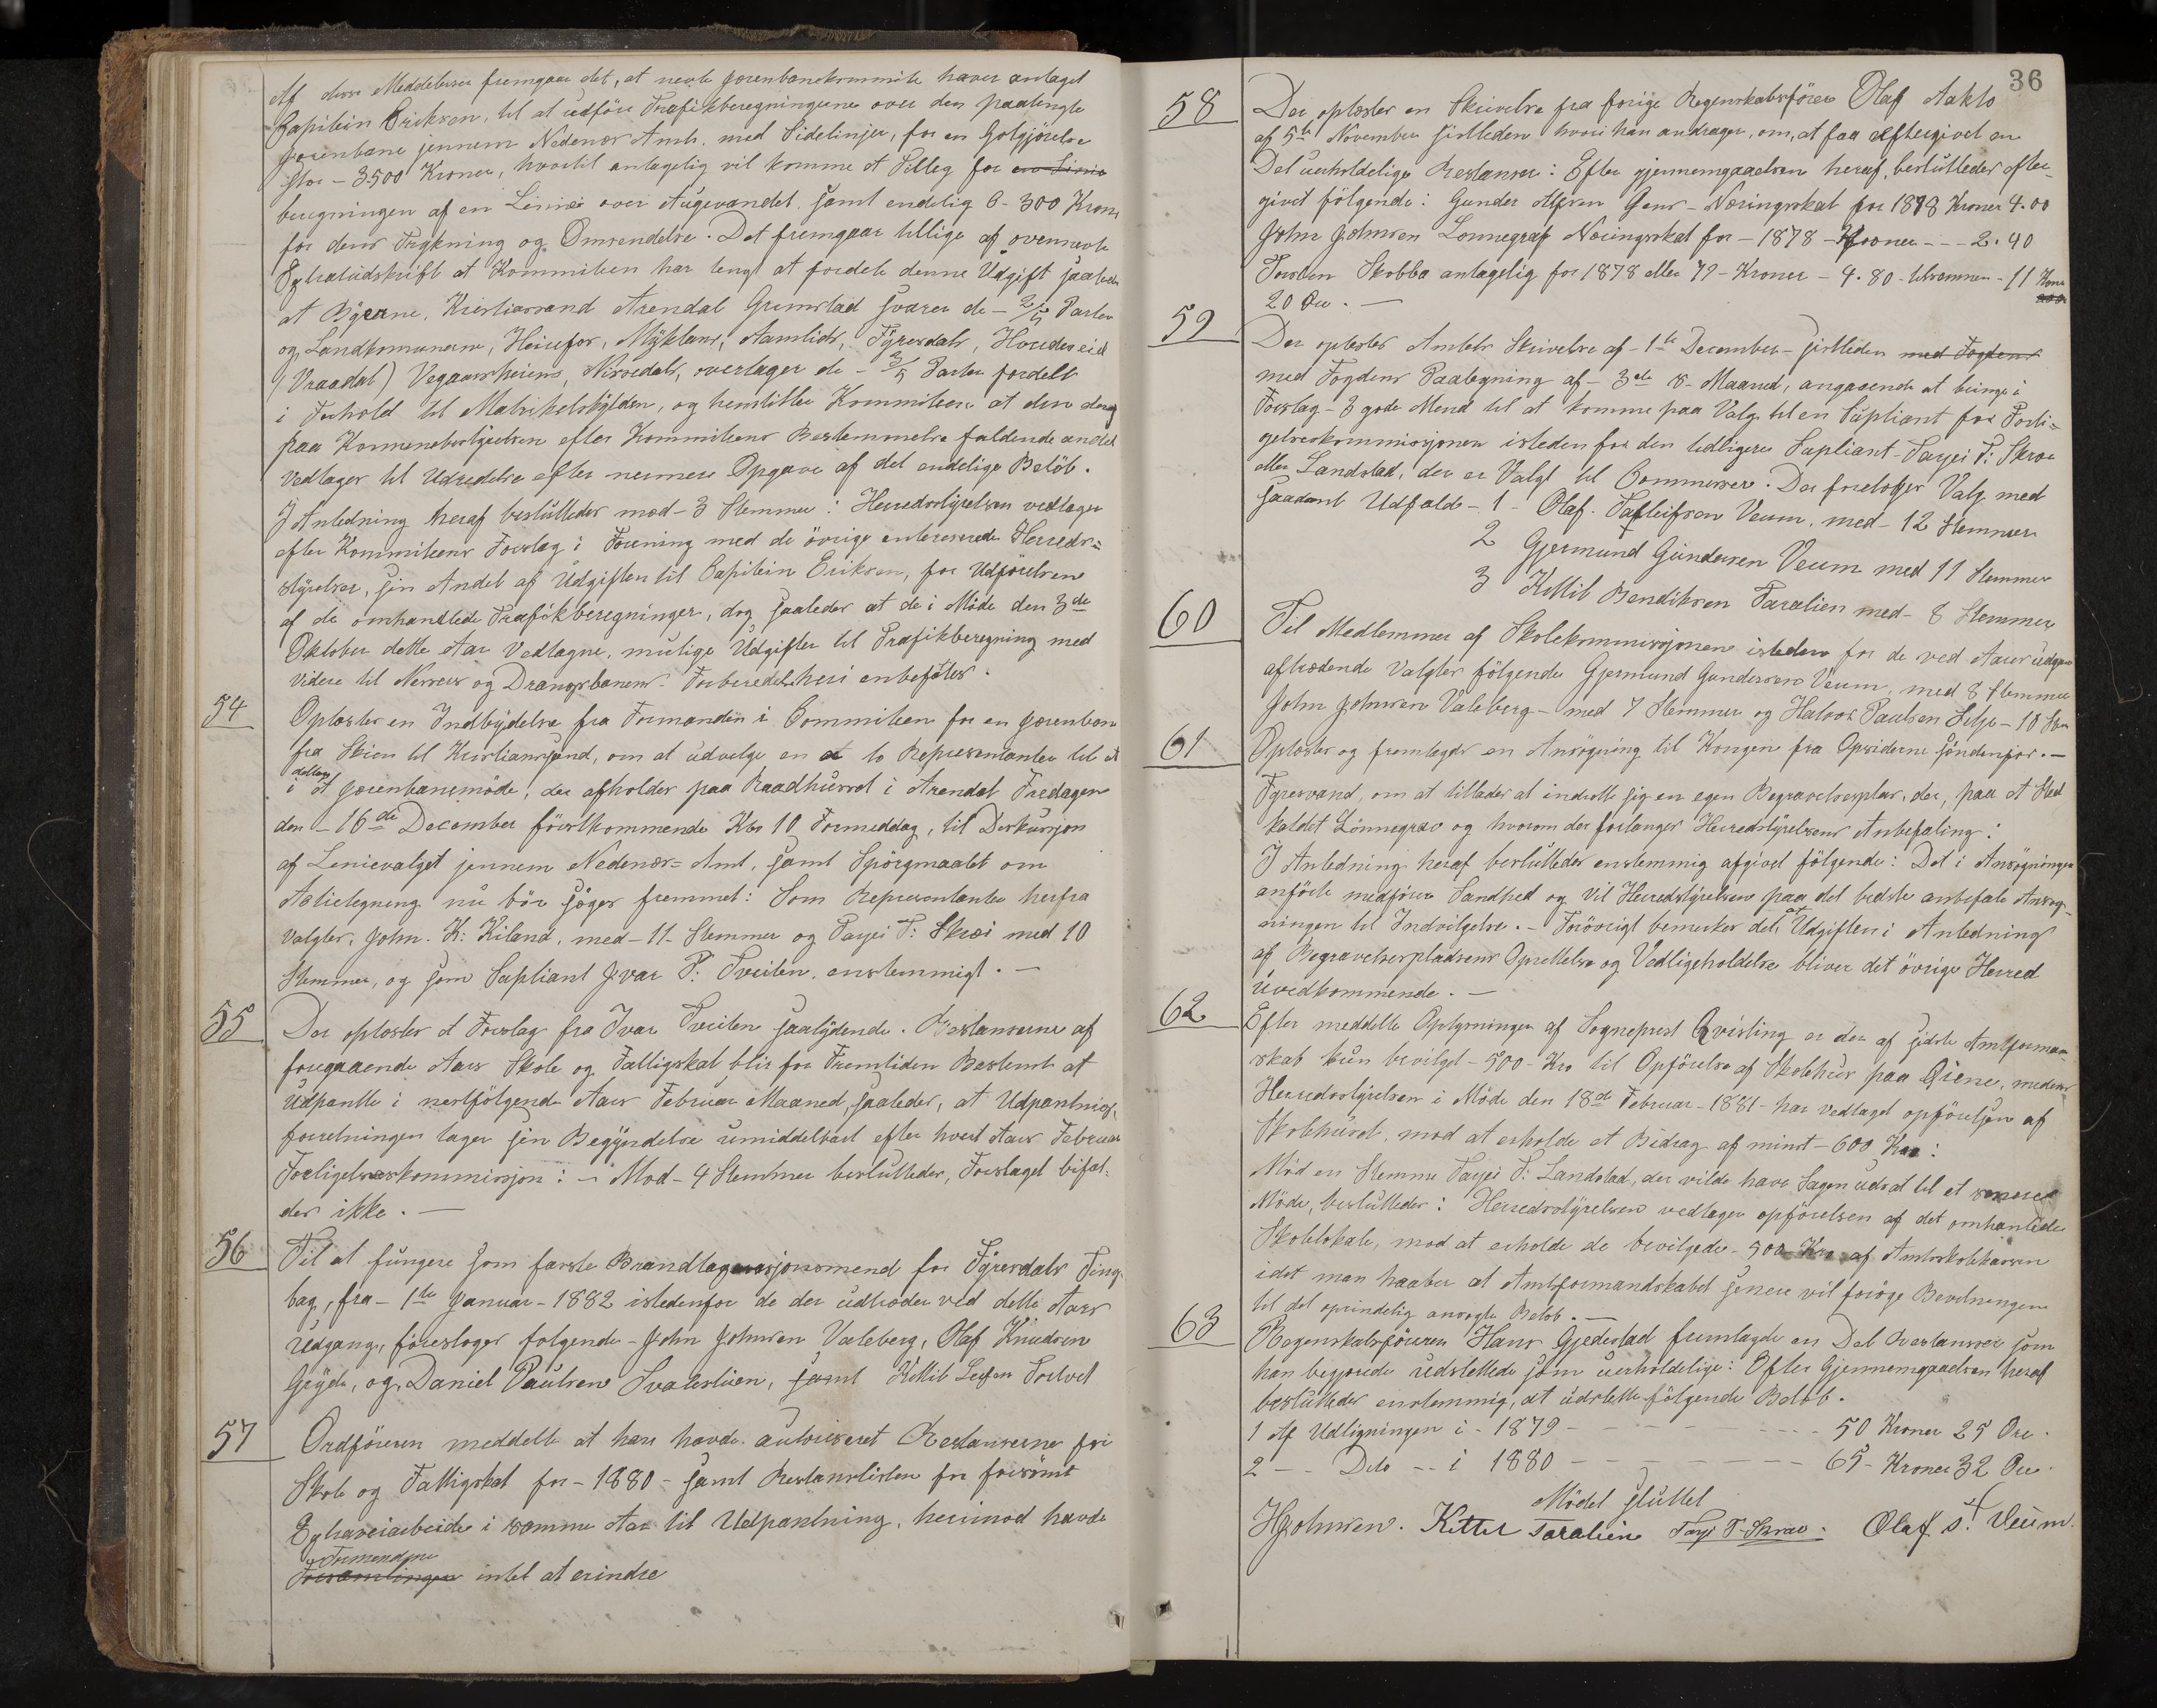 Af disse Meddelelser fremgaar det, at nevte Jærenbanekommite haver antaget
Capitein Eriksen, til at udföre Trafikberegningerne over den paatengte
Jærenbane jennem Nedenæs Amt, med Sidelinjer, for en Gotgjörelse
stor - 3500 Kroner, hvortil antagelig vil komme et Tilleg for
beregningen af en Linie over Augevandet, samt endelig 300 Kroner
for deres Trykning og Omsendelse. Det fremgaar tillige af ovennevte
Extraludskrift at Kommiteen har tengt at fordele denne Udgift saaledes
at Byerne, Kristiansand Arendal Grimstad svarer de - 2/5 Parter
og Landkomunerne, Heirefos, Mÿklans, Aamlids, Tÿresdals, Hvideseid
(Vraadal) Vegaarsheiens, Nissedals, overtager de - 3/5 Parter fordelt
i Forhold til Matrikelskÿlden, og henstiller Kommiteen at den deraf
paa Kommunebestÿrelsen efter Kommiteens Bestemmelse faldende andel
vedtages til Udredelse efter nermere Opgave af det endelige Belöb.
I Anledning heraf besluttedes mod - 3 Stemmer: Herredsstÿrelsen vedtager
efter Kommiteens Forslag i Forening med de övrige interesserede Herreds=
stÿrelser, sin Andel af Udgiften til Capitein Eriksen, for Udförelsen
af de omhandlede Trafikberegninger, dog saaledes at de i Möde den 3de
Oktober dette Aar Vedtagne, mulige Udgifter til Trafikberegning med
videre til Nersens og Drangsbanens Forberedels heri enbefattes.
54
Oplæstes en Indbÿdelse fra Formanden i Commiteen for en Jærenbane
fra Skien til Kristiansand, om at udvelge en a to Represæntanter til at
deltage
i et Jærenbanemöde, der afholdes paa Raadhusset i Arendal Fredagen
den - 16de December förstkommende Kl 10 Formeddag, til Diskusjon
af Lenievalget jennem Nedenæs= Amt, samt Spörgmaalet om
Aktietegning nu bör söges fremmet: Som Represæntanter herfra
valgtes, John. K: Kiland, med - 11 - Stemmer og Tarjei T: Skræi med 10
Stemmer, og som Supliant Ivar P: Tveiten, enstemmigt. -
55
Der oplæstes et Forslag fra Ivar Tveiten saalÿdende. Restanserne af
foregaaende Aars Skole og Fattigskat blir for Fremtiden Bestemt at
Udpantte i nestfölgende Aars Februar Maaned, saaledes, at Udpantnings=
forretningen tager sin Begÿndelse umiddelbart efter hvert Aars Februar
Forligelseskommisjon: - Mod - 4 Stemmer besluttedes, Forslaget bifal=
des ikke. -
56
Til at fungere som faste Brandtagssjonsmend for Tÿresdals Ting=
lag, fra - 1te Januar - 1882 istedenfor de der udtræder ved dette Aars
Udgang, föreslages folgende - John Johnsen Valeberg, Olaf Knudsen
Gröÿde, og, Daniel Paulsen Svalestuen, samt Kittil Leifsen Tostvet
57
Ordföreren meddelte at han havde autoriseret Restanserne for
Skole og Fattigskat for - 1880 - samt Restanslisten for forsömt
Extraveiarbeide i somme Aar til Udpantning, herimod havde
Formendene
Forsamlingen intet at erindre
36
58
Der oplæstes en Skrivelse fra forige Regenskabsförer Olaf Aakto
af 5te November sistleden hvori han andrager, om, at faa eftergivet en
Del uerholdelige Restanser: Efter gjennemgaaelsen heraf, besluttedes efter=
givet fölgende: Gunder Alfsen Gens - Næringsskat for 1878 Kroner 4.00
John Johnsen Lonnegrav Næringsskat for - 1878 - Kroner - - - 2.40
Torsten Skobba antagelig for 1878 eller 79 - Kroner - 4.80 - tilsammen - 11 Kroner
20 Öre. -
59
Der oplæstes Amtets Skrivelse af - 1te December - sistleden med Fogdens
med Fogdens Paategning af - 3de s- Maaned, angaaende at bringe i
Forslag - 3 gode Mend til at komme paa Valg til en Supliant for Forli=
gelseskommissjonen isteden for den tidligere Supliant - Tarjei T: Skræe
eller Landstad, der er Valgt til Commissær. Der foretoges Valg med
saadant Udfald - 1 - Olaf. Tarleifsen Veum, med - 12 Stemmer
2 Gjermund Gundersen Veum med 11 Stemmer
3 Kittil Bendiksen Taralien med - 8 Stemmer
60
Til Medlemmer af Skolekommissjonen isteden for de ved Aarsudgang
aftrædende valgtes fölgende Gjermund Gundersen Veum, med 8 Stemmer
John Johnsen Valeberg - med 7 Stemmer og Halvor Paulsen Silje - 10 Stm
61
Oplæstes og fremlagdes en Ansögning til Kongen fra Opsiderne söndenfor. -
Tÿresvand, om at tillades at indrette sig en egen Begravelsesplas, der, paa et Sted
kaldet Lönnegrav og hvorom der forlanges Herredsstÿrelsens Anbefaling:
I Anledning heraf besluttedes enstemmig afgivet fölgende: Det i Ansögningen
anförte medförer Sandhed og vil Herredstÿrelsen paa det bedste anbefale Ansög=
ningen til Indvilgelse. - Forövrigt bemerkes dets at Udgiften i Anledning
af Begravelsespladsens Oprettelse og Vedligeholdelse bliver det övrige Herred
uvedkommende. -
62
Efter meddelte Oplysninger af Sogneprest Qvisling er der af sidste Amtsforman=
skab kun bevilget - 500 - Kro til Opförelse af Skolehus paa Qiene, medens
Herredsstÿrelsen i Möde den 18de Februar - 1881 - har vedtaget opförelsen af
Skolehuset, mod at erholde et Bidrag af minst - 600 Kro:
Mod en Stemme Tarjei T: Landstad, der vilde have Sagen udsat til et senere
Möde, besluttedes: Herredsstÿrelsen vedtager opförelsen af det omhanlede
Skolelokale, mod at erholde de bevilgede - 500 Kro af Amtsskolekassen
idet man haaber at Amtsformandskabet senere vil foröge Bevilningen
til det oprindelig ansögte Belöb. -
63
Regenskabsföreren Hans Gjedestad fremlagde en Del Restanser som
han begjærede udslettede som uerholdelige: Efter Gjennemgaaelsen heraf
besluttedes enstemmig, at udslette fölgende Belöb.
1 Af Udligningen i - 1879 - - - - - - 50 Kroner 25 Öre.
2 - - Dito - - i 1880 - - - - - - 65 - Kroner 32 Öre.
Mödet sluttet
HJohnsen. Kittil Taralien Tarjei T. Skræe. Olaf S. Veum.